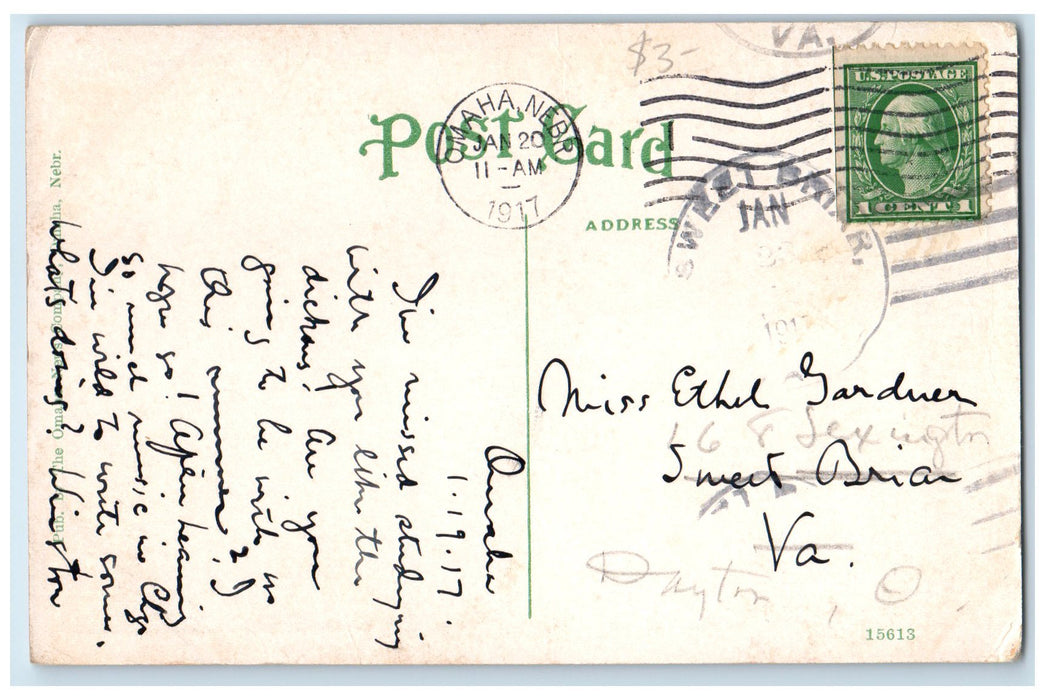 $3-
VA.
U.S. POSTAGE
1 CENT 1
OMAHA, NEBR.
JAN 20
11-AM
1917
Post Card
ADDRESS
SWEET BRIAR,
JAN
1917
Miss Ethel Gardner
168 Lexington
Sweet Briar
Va.
Dayton, O.
15613
Omaha
1.19.17.
I've missed studying
with you like the
dickens! Are you
going to be with us
this summer? I
hope so! After hearing
so much music in Chgo
I'm wild to write some.
What's doing? Winston
Pub. by The Omaha News Company, Omaha, Nebr.